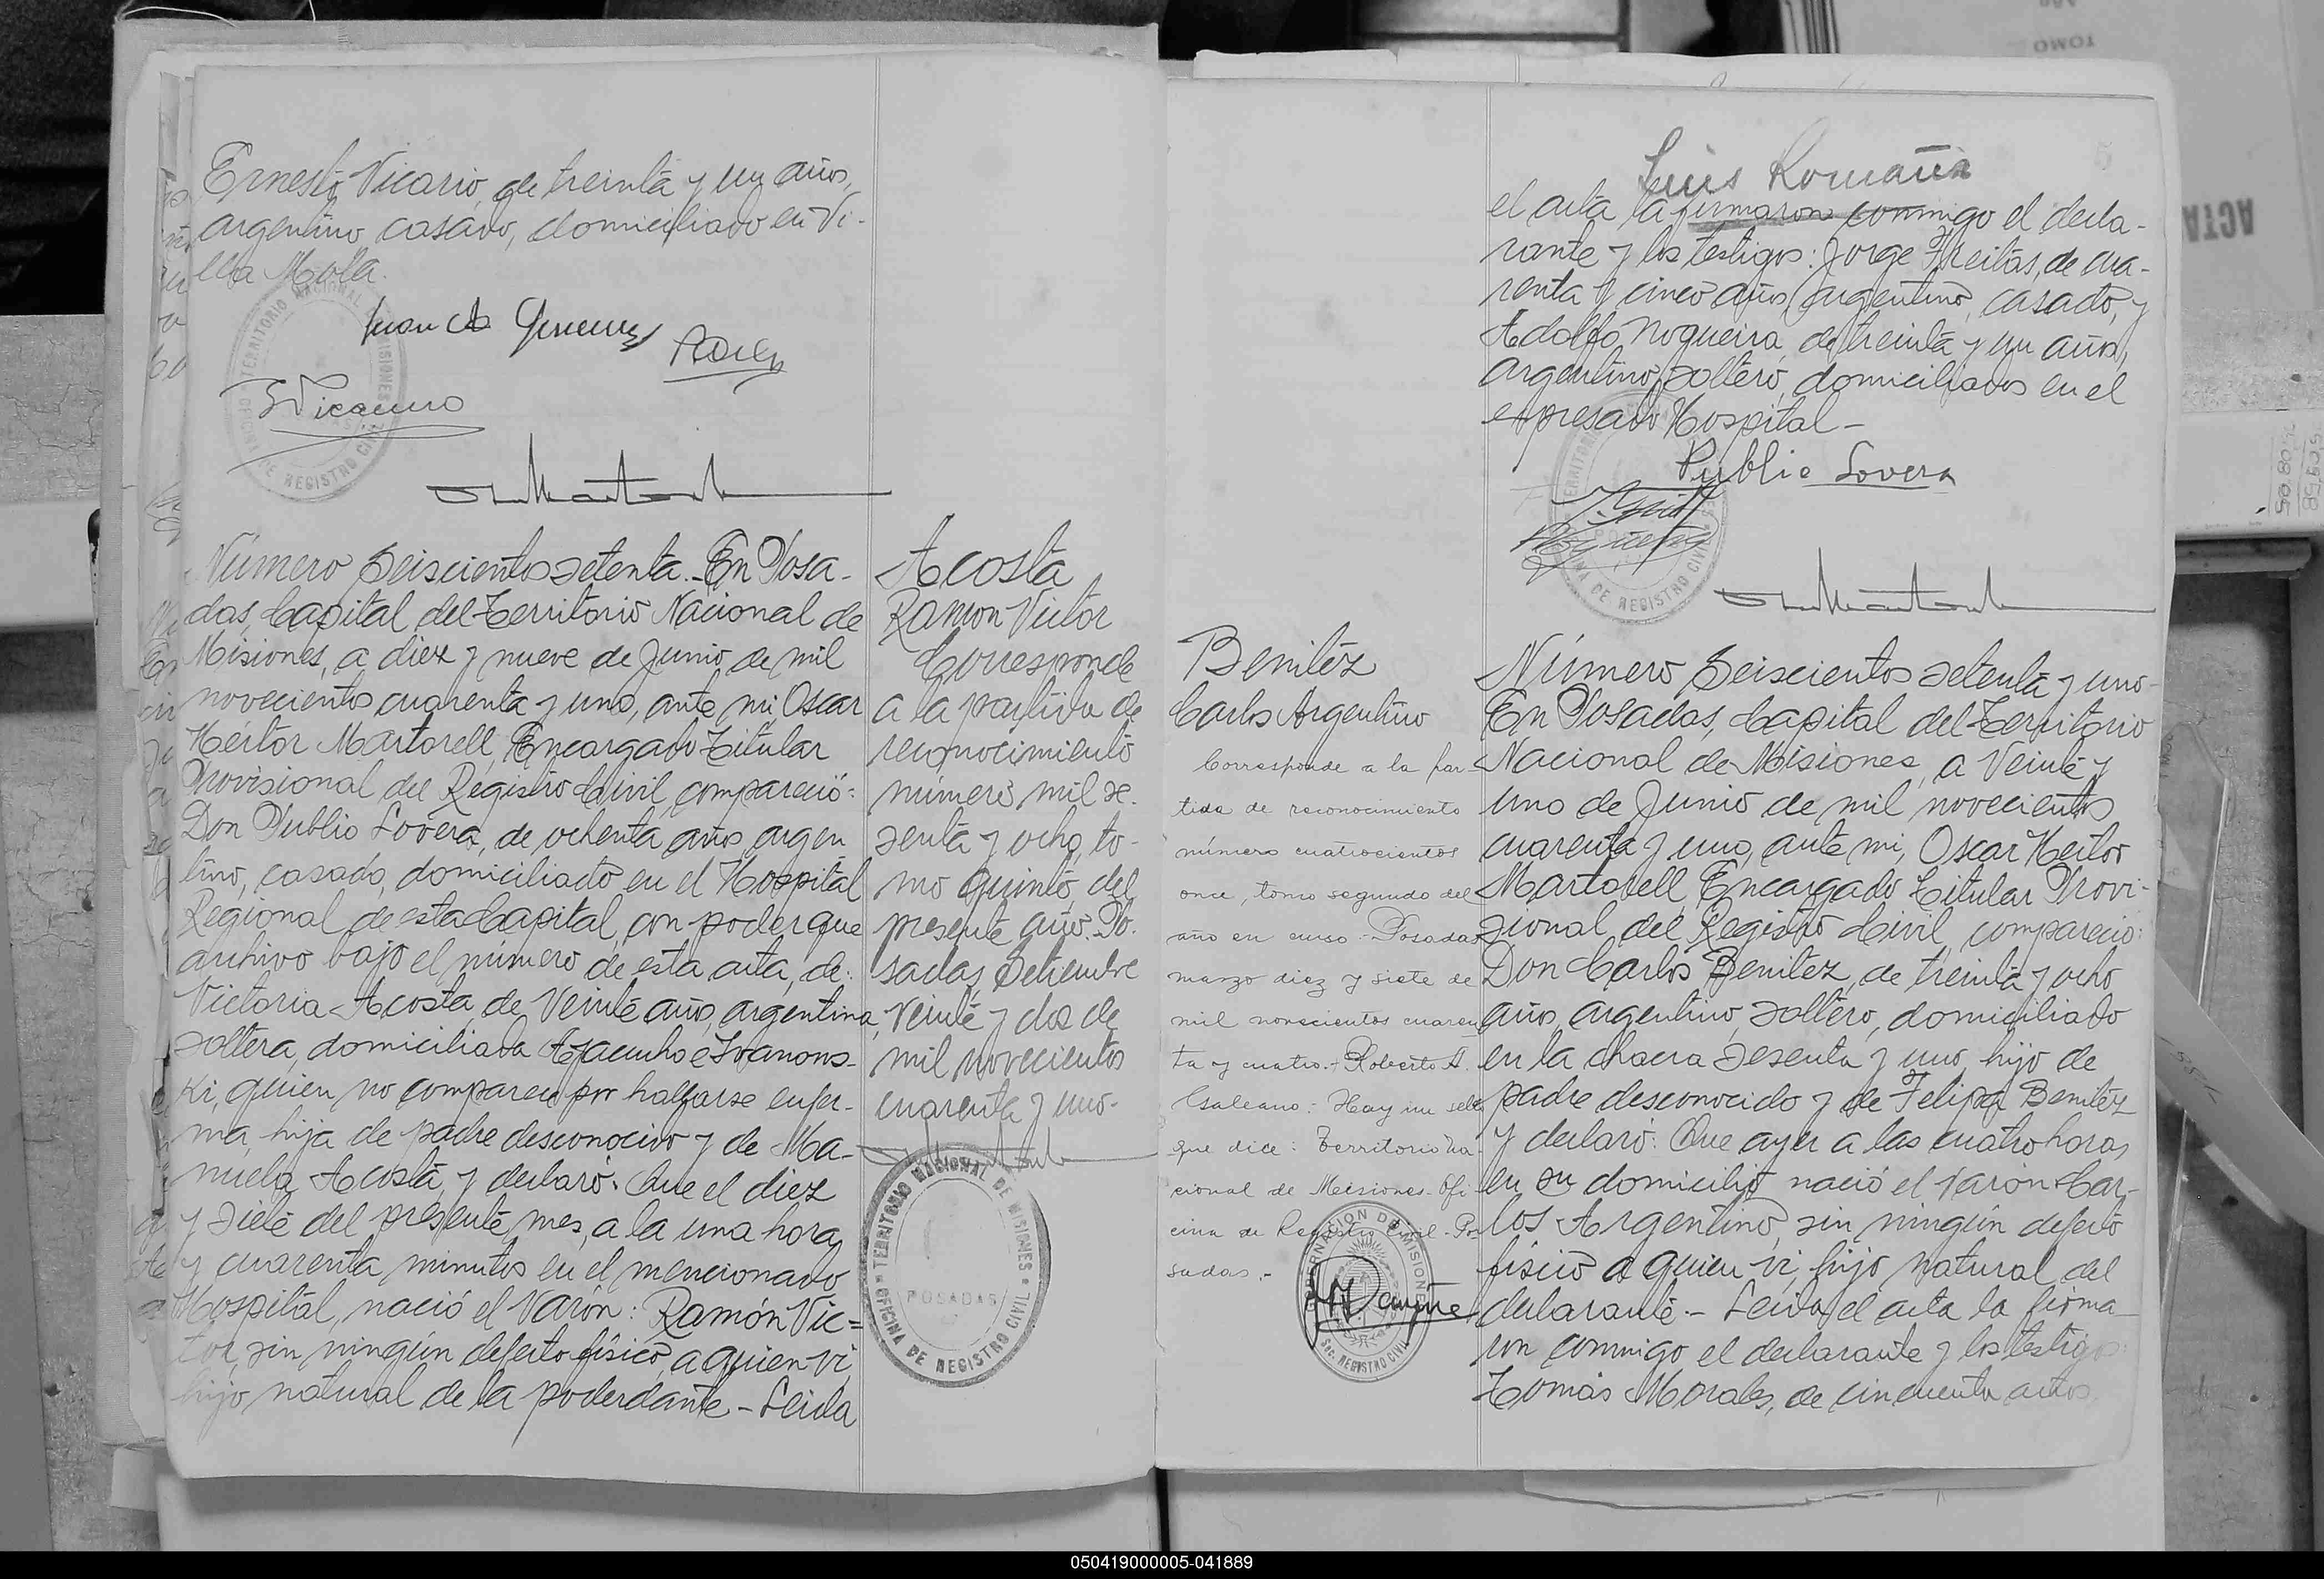 Ernesto Vicario, de treinta y un años,
argentino, casado, domiciliado en Vi-
lla Mola.
E Vicario
Número Seiscientos setenta.- En Posa-
das, Capital del Territorio Nacional de
Misiones, a diez y nueve de Junio de mil
novecientos cuarenta y uno, ante mi, Oscar
Héctor Martorell, Encargado Titular
Provisional del Registro Civil, compareció:
Don Publio Lovera, de ochenta años, argen
tino, casado, domiciliado en el Hospital
Regional de esta Capital, con poder que
archivo bajo el número de esta acta, de:
Victoria Acosta de Veinte años, argentina,
soltera, domiciliada Ayacucho e Ivanows-
ki, quien no comparece por hallarse enfer-
ma, hija de padre desconocido y de Ma-
nuela Acosta, y declaró: Que el diez
y siete del presente mes, a la una hora
y cuarenta minutos en el mencionado
Hospital, nació el Varón: Ramón Víc=
tor, sin ningún defecto físico, a quien vi,
hijo natural de la poderdante - Leída
Acosta
Ramon Victor
Corresponde
a la partida de
reconocimiento
número mil se-
senta y ocho, to-
mo quinto, del
presente año. Po-
sadas, Setiembre
Veinte y dos de
mil novecientos
cuarenta y uno-
TERRITORIO NACIONAL DE MISIONES
POSADAS
OFICINA DE REGISTRO CIVIL
Luis Romaña
el acta la firmaron conmigo el decla-
rante y los testigos: Jorge Freitas, de cua-
renta y cinco años, argentino, casado, y
Adolfo Nogueira, de treinta y un años,
argentino, soltero, domiciliados en el
expresado Hospital-
Publio Lovera
Benitez
Carlos Argentino
Corresponde a la par-
tida de reconocimiento
número cuatrocientos
once, tomo segundo del
año en curso.- Posadas
marzo diez y siete de
mil novecientos cuaren
ta y cuatro.- Roberto A.
Galeano.- Hay un sello
que dice: Territorio Na-
cional de Misiones. Ofi
cina de Registro Civil. Po
sadas.-
GOBERNACION DE MISIONES
SEC. REGISTRO CIVIL
Número Seiscientos setenta y uno-
En Posadas, Capital del Territorio
Nacional de Misiones, a Veinte y
uno de Junio de mil novecientos
cuarenta y uno, ante mi, Oscar Héctor
Martorell, Encargado Titular Provi-
sional del Registro Civil, compareció:
Don Carlos Benitez, de treinta y ocho
años, argentino, soltero, domiciliado
en la chacra Sesenta y uno, hijo de
padre desconocido y de Felipa Benitez
y declaró: Que ayer a las cuatro horas
en su domicilio nació el Varón Car-
los Argentino, sin ningún defecto
físico a quien vi, hijo natural del
declarante.- Leída el acta la firma
ron conmigo el declarante y los testigos:
Tomás Morales, de cincuenta años
ACTA
TOMO
050419000005-041889